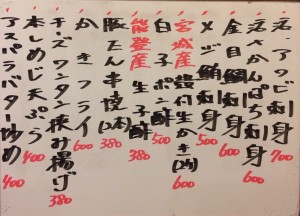 活アワビ刺身 700
活さかんぱち刺身 600
金目鯛刺身 600
メジ鮪刺身 500
宮城産 殻付生かき(2ヶ) 600
白子ポン酢 500
能登産 生子酢 380
豚たん串焼(2本) 380
かきフライ 600
チーズワンタン挟み揚げ 380
本しめじ天ぷら 400
アスパラバター炒め 400